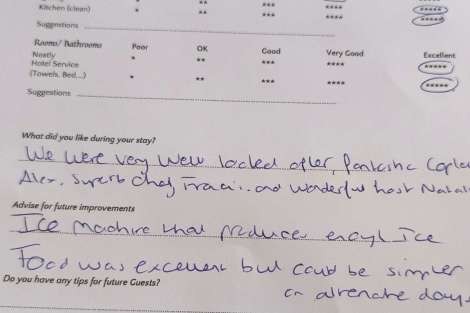 Kitchen (clean) * ** *** **** *****
** *** **** *****
Suggestions
Rooms/ Bathrooms Poor OK Good Very Good Excellent
Neatly * ** *** **** *****
Hotel Service
(Towels, Bed...) * ** *** **** *****
Suggestions
What did you like during your stay?
We were very well looked after, Fantastic
Alex. Superb Chef and wonderful host
Advise for future improvements
Ice machine that produces Ice
Food was excellent but could be simpler
Do you have any tips for future Guests?
on alternate days